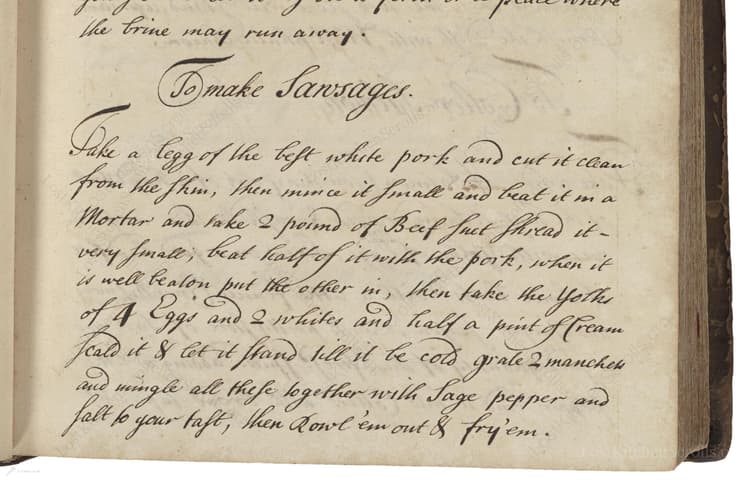 a place where
the brine may run away.
To make Sawsages.
Take a legg of the best white pork and cut it clean
from the skin, then mince it small and beat it in a
Mortar and take 2 pound of Beef suet shread it -
very small; beat half of it with the pork, when it
is well beaton put the other in, then take the Yolks
of 4 Eggs and 2 whites and half a pint of Cream
scald it & let it stand till it be cold grate 2 manchets
and mingle all these together with Sage pepper and
salt to your tast, then Rowl 'em out & fry 'em.